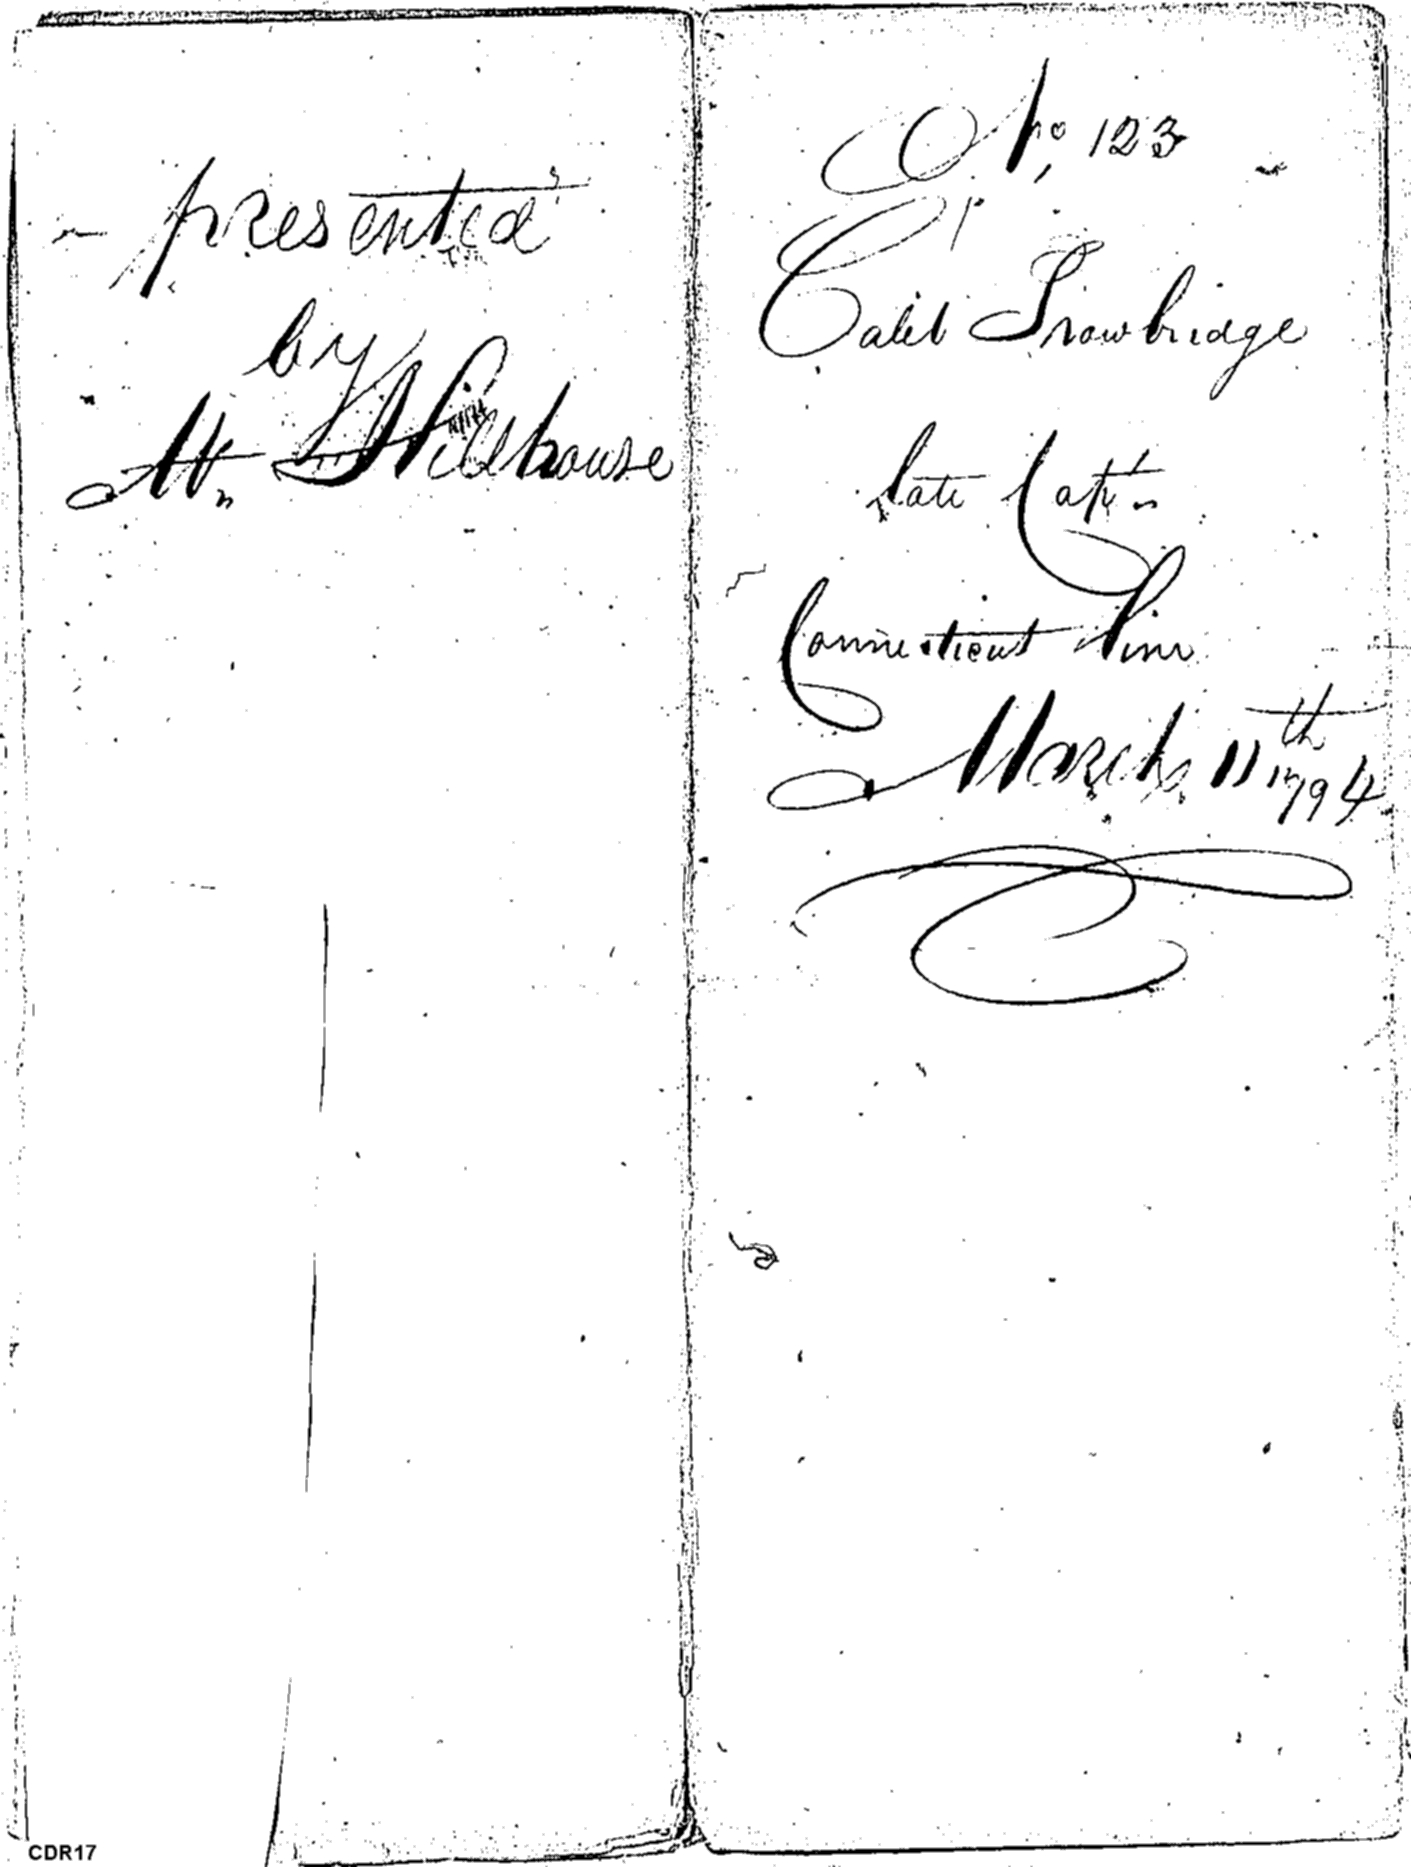 presented
by
Mr Hillhouse
No, 123
Caleb Trowbridge
late Capt.
Connecticut Line
March 11th 1794
CDR17